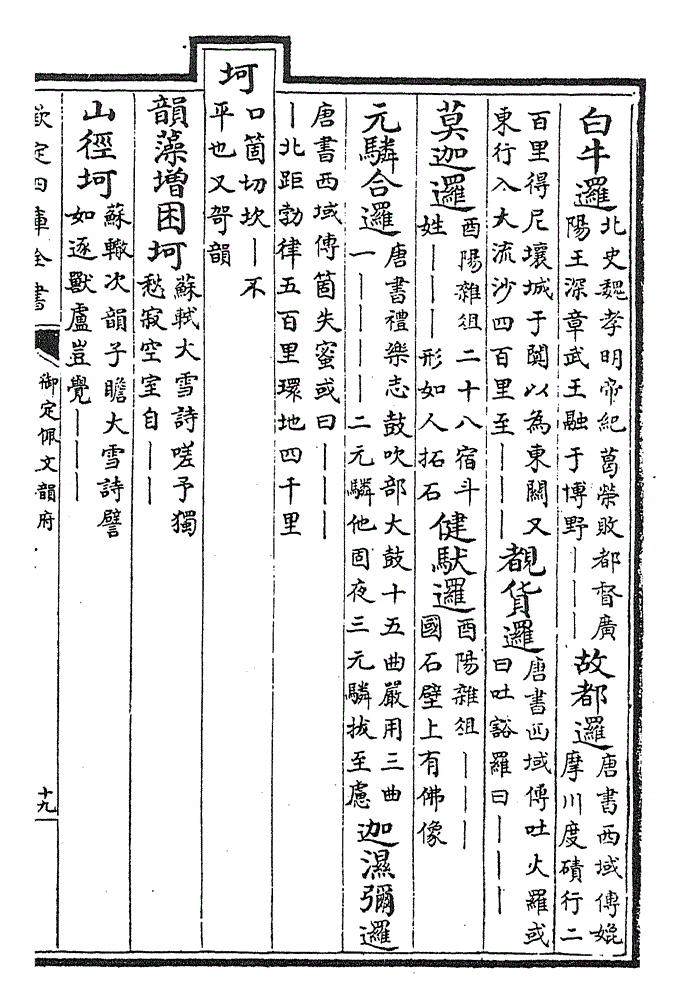 白牛邏
北史魏孝明帝紀葛榮敗都督廣
陽王深章武王融于博野｜｜｜
故都邏
唐書西域傳媲
摩川度磧行二
百里得尼壤城于闐以為東關又
東行入大流沙四百里至｜｜｜
覩貨邏
唐書西域傳吐火羅或
曰吐豁羅曰｜｜｜
莫迦邏
酉陽雜俎二十八宿斗
姓｜｜｜形如人拓石
健馱邏
酉陽雜俎｜｜｜
國石壁上有佛像
元驎合邏
唐書禮樂志鼓吹部大鼓十五曲嚴用三曲
一｜｜｜｜二元驎他固夜三元驎拔至慮
迦濕彌邏
唐書西域傳箇失蜜或曰｜｜｜
｜北距勃律五百里環地四千里
坷
口箇切坎｜不
平也又哿韻
韻藻增困坷
蘇軾大雪詩嗟予獨
愁寂空室自｜｜
山徑坷
蘇轍次韻子瞻大雪詩譬
如逐獸盧豈覺｜｜｜
欽定四庫全書
御定佩文韻府
十九